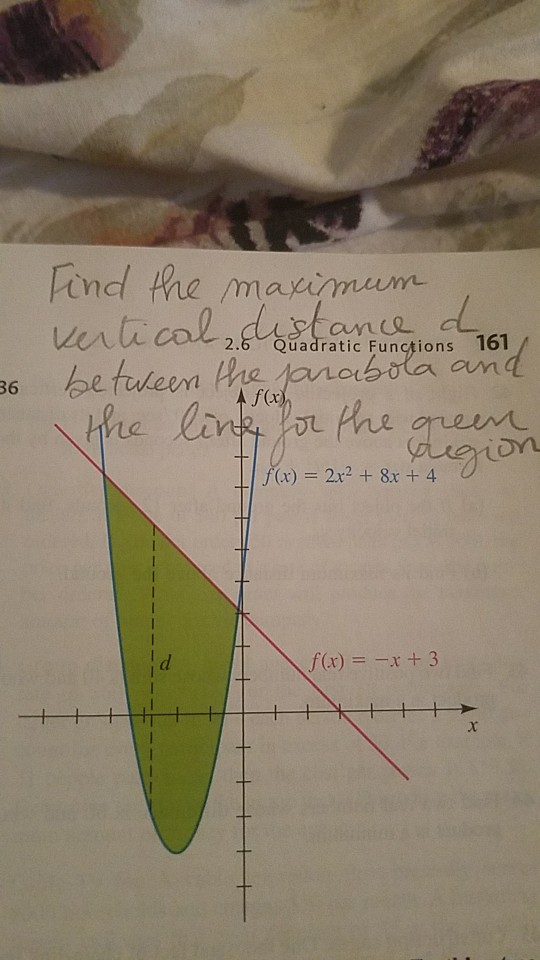 Find the maximum
vertical distance d
2.6 Quadratic Functions 161
between the parabola and
36
the line for the green
region
f(x)
f(x) = 2x² + 8x + 4
d
f(x) = −x + 3
x